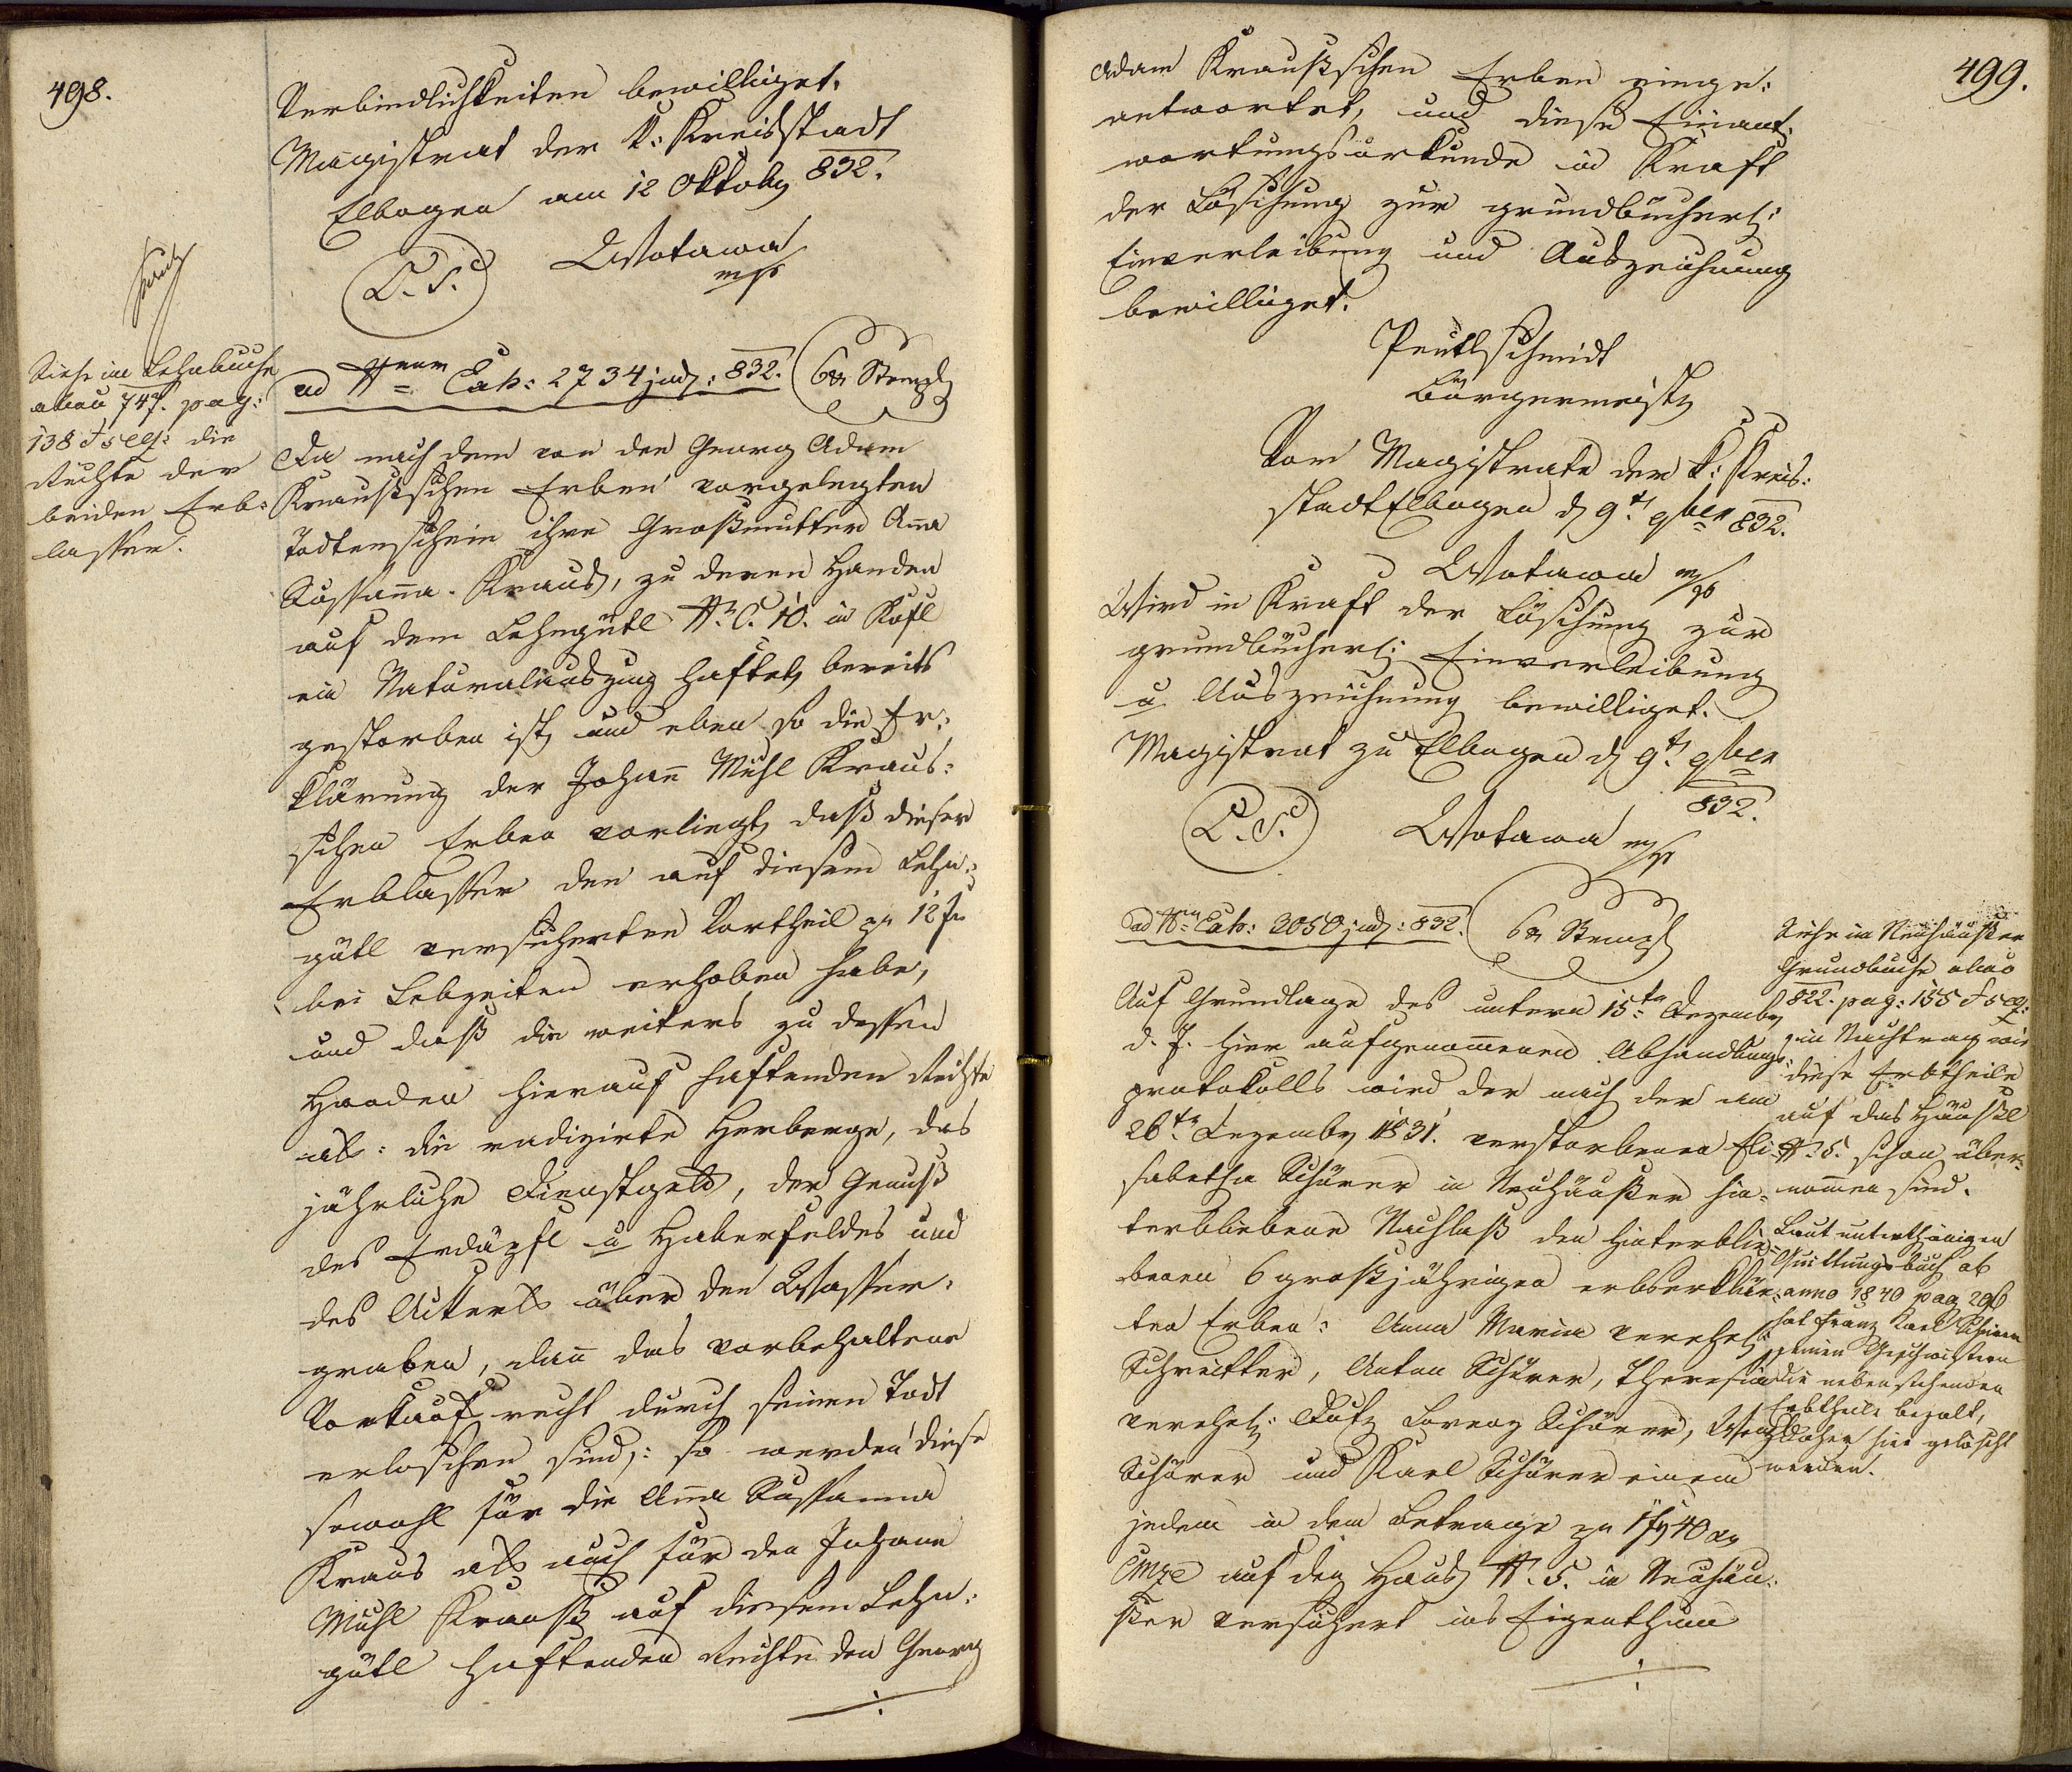 498.
Verbindlichkeiten bewilliget.
Magistrat der k: Kreisstadt
Elbogen am 12 Oktob 832.
L. S.
Wotawa
mp
Siehe im Lehnbuche
anno 747. pag:
138 et seq: die
Rechte der
beiden Erb-
lasser.
ad Nrum Exh: 2734 jud: 832.
6 xr Stempl
Da nach dem von den Georg Adam
Kraußischen Erben vorgelegten
Todtenschein ihre Großmutter Ana
Sussana Kraus, zu deren Handen
auf dem Lehngütl N. C. 10. in Kofl
ein Naturalauszug haftet, bereits
gestorben ist, und eben so die Er-
klärung der Johann Michl Kraus-
ischen Erben vorliegt, daß dieser
Erblasser den auf diesem Lehn-
gütl versicherten Vortheil pr 12 f
bei Lebzeiten erhoben habe,
und daß die weiters zu dessen
Handen hierauf haftenden Rechte
als: die radizirte Herberge, das
jährliche Dienstgeld, der Genuß
des Erdäpfl u Haberfeldes und
des Ackerls über den Wasser-
graben, dan das vorbehaltene
Vorkaufsrecht durch seinen Todt
erloschen sind: so werden diese
sowohl für die Ana Sussanna
Kraus als auch für den Johann
Michl Krauß auf diesem Lehn-
gütl haftenden Rechte den Georg
./.
499.
Adam Kraußischen Erben einge-
antwortet, und diese Einant-
wortungsurkunde in Kraft
der Löschung zur grundbücherl:
Einverleibung und Auszeichnung
bewilliget.
Peutlschmidt
Bürgermeister
Vom Magistrate der k: Kreis-
stadt Elbogen d 9t 9ber 832.
Wotawa mp
Wird in Kraft der Löschung zur
grundbücherl: Einverleibung
u Auszeichnung bewilliget.
Magistrat zu Elbogen d 9t 9ber
832.
L. S.
Wotawa mp
ad Nrum Exh: 3050 jud: 832.
6 xr Stempl
Auf Grundlage des unterm 15ten Dezemb
d. J. hier aufgenommenen Abhandlungs-
protokolls wird der nach der am
26ten Dezember 1831. verstorbenen Eli-
sabetha Schürer in Neuhäußer hin-
terbliebene Nachlaß den hinterblie-
benen 6 großjährigen erbserklär-
ten Erben: Anna Maria verehel:
Schreitter, Anton Schürer, Theresia
verehel: Lorenz Schürer,
Schürer und Karl Schürer einem
jeden in dem Betrage zu 1 f 40 xr
CMze auf den Haus N. 5. in Neuhäu-
ßer versichert ins Eigenthum
./.
Siehe im Neuhäußer
Grundbuche anno
822. pag: 155 et seq:
ein Nachtrag wie
diese Erbtheile
auf das Häußel
N. 5. schon über-
nomen sind.
Laut unterthänigen
Quittungsbuch ab
anno 1840 pag 296
hat Franz Karl Schürer
seinen Geschwistern
die nebenstehenden
Erbtheile bezalt,
daher hier gelöscht
werden.